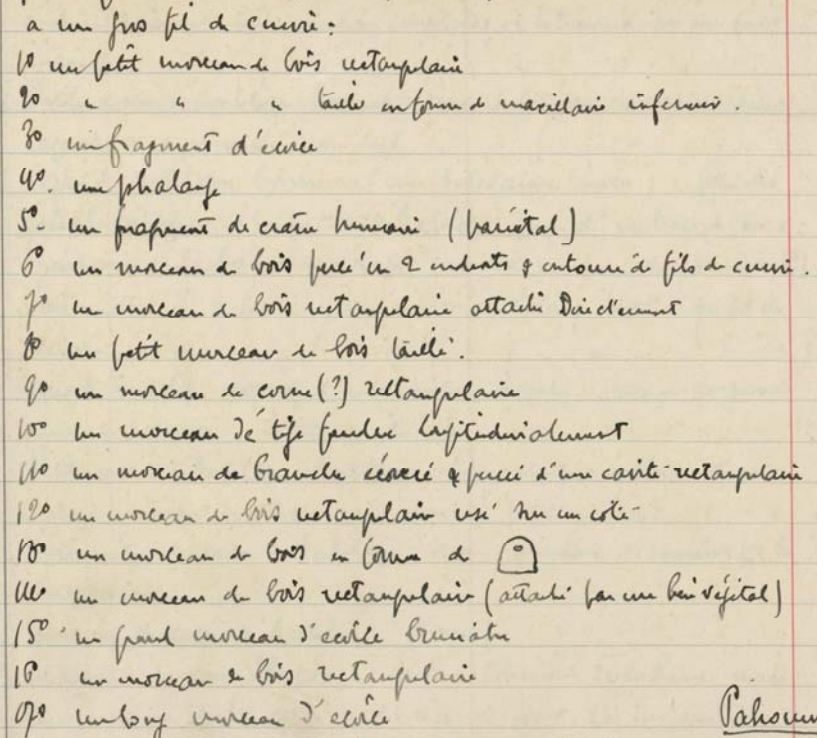 à un gros fil de cuivre :
1º un petit morceau de bois rectangulaire
2º " " " taillé en forme de maxillaire inférieur.
3º un fragment d'écorce
4º. une phalange
5º- un fragment de crâne humain (pariétal)
6º un morceau de bois percé en 2 endroits & entouré de fils de cuivre.
7º un morceau de bois rectangulaire attaché Directement
8º un petit morceau de bois taillé.
9º un morceau de corne (?) rectangulaire
10º un morceau de tige fendue longitudinalement
11º un morceau de branche écorcé & percé d'une cavité rectangulaire
12º un morceau de bois rectangulaire usé sur un côté
13º un morceau de bois en forme de
14º un morceau de bois rectangulaire (attaché par un lien végétal)
15º un grand morceau d'écorce brunâtre
16º un morceau de bois rectangulaire
17º un long morceau d'écorce Pahouin